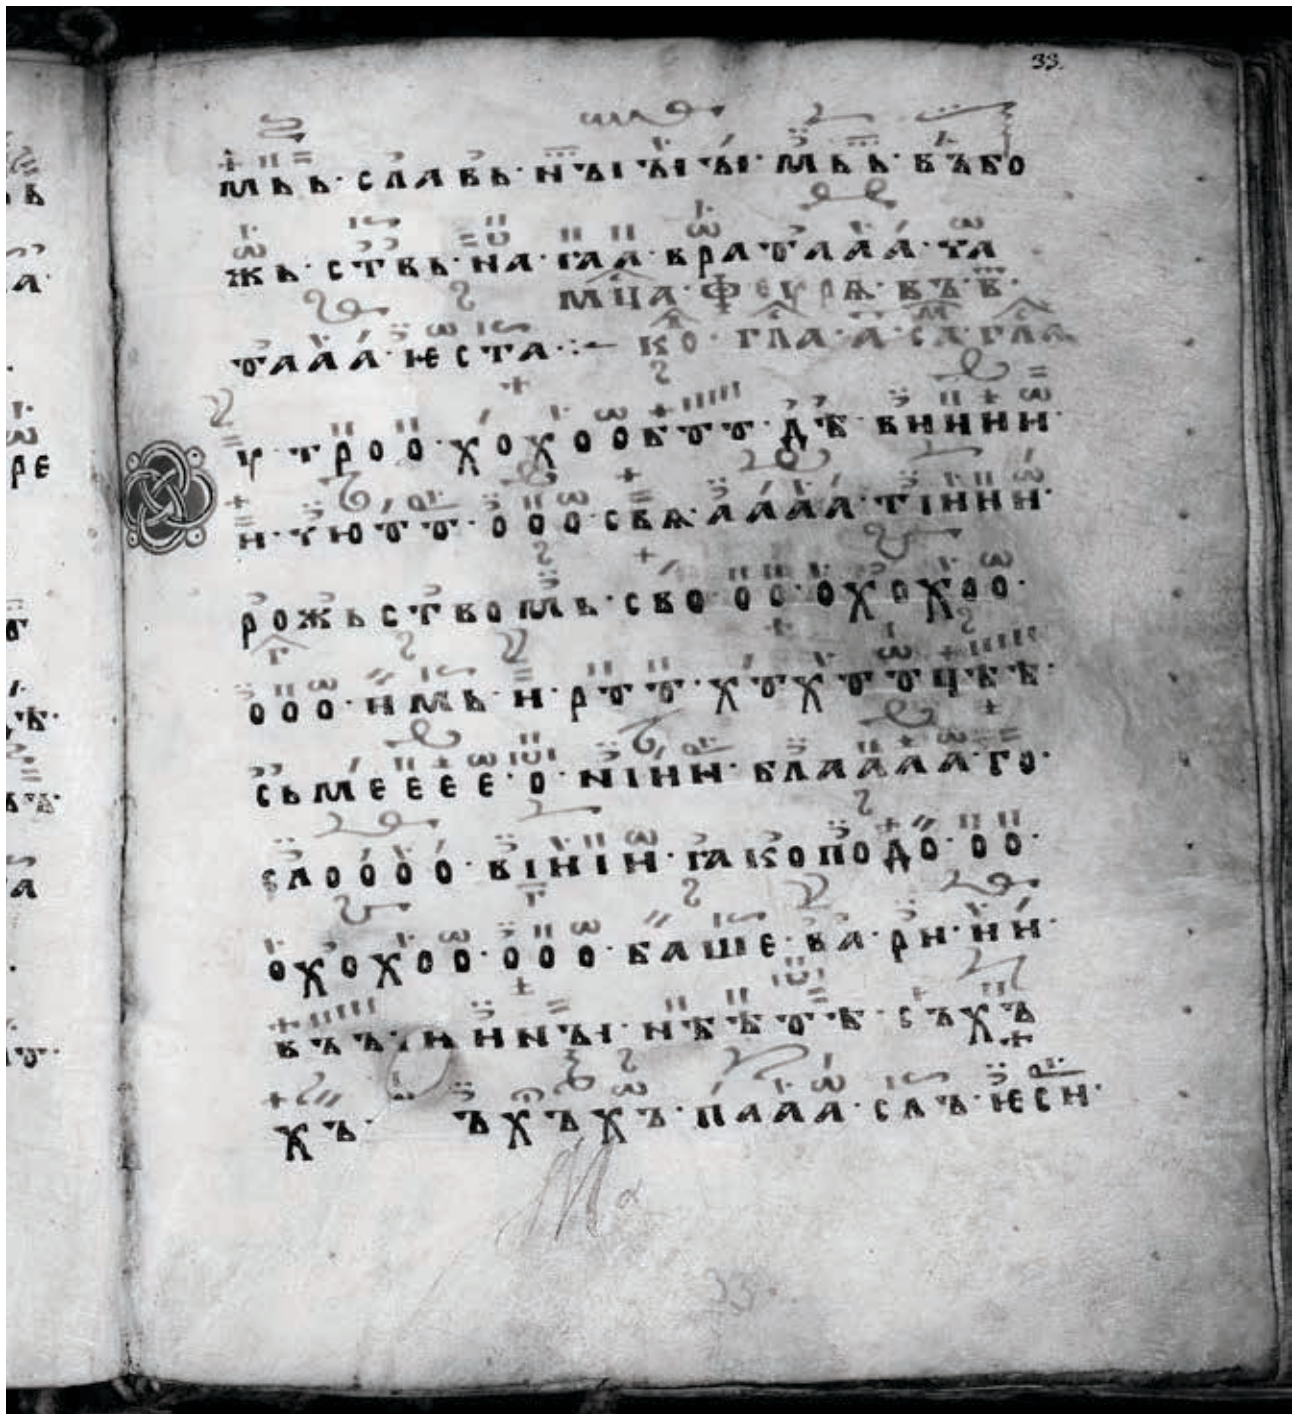 33.
мьь · славь · нꙑꙑꙑ · мьь · въбо
жь · ствь · на · гаа · вратааа · та
мцⷭ҇а · феѵрѧ · въ · в҃ ·
тааа · ѥста · :· ко҃ · гла · а · са҃ · гла
ꙋ · троо · хохооботт · дѣ · вииии ·
и · тюъъ · ооо · свѧ · аааа · тіиии ·
рожьствомь · сво · оо · охохоо ·
ооо · имь · и · ръъ · хъхъъцѣѣ ·
сьмееее · о · ніии · блаааа · го ·
слоооо · віиіи · ꙗкоподо · оо ·
охохоо · ооо · баше · ва · ри · ии ·
въъ · инꙑ · нѣѣъѣ · съхъ
хъ · ъхъхъ · пааа · слъ · ѥси ·
33.